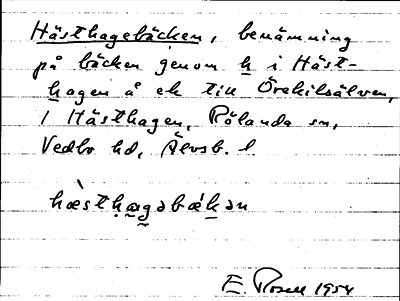 Hästhagebäcken, benämning
på bäcken genom h i Häst-
hagen å ek till Örekilsälven,
i Hästhagen, Rölanda sn,
Vedbo hd, Älvsb. l.
hæ̀sthægəbækən
E. Rosell 1954